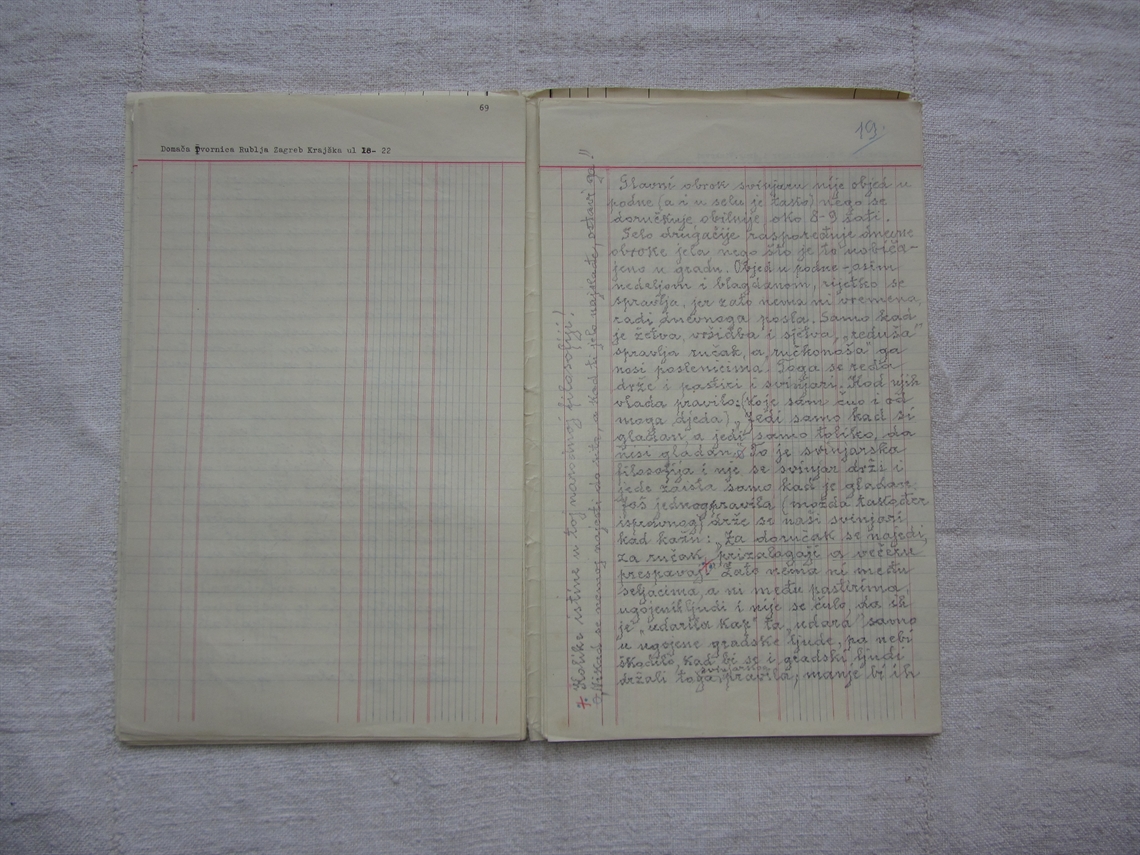 69
Domaća Tvornica Rublja Zagreb Krajška ul 18- 22
19.
Glavni obrok svinjaru nije objed u
podne (a i u selu je tako) nego se
doručkuje obilnije oko 8-9 sati.
Selo drugačije raspoređuje dnevne
obroke jela nego što je to uobiča-
jeno u gradu. Objed u podne osim
nedeljom i blagdanom, rijetko se
spravlja, jer zato nema ni vremena,
radi dnevnoga posla. Samo kad
je žetva, vršidba i sjetva, „reduša"
spravlja ručak, a „ručkonoša" ga
nosi poslenicima. Toga se reda
drže i pastiri i svinjari. Kod njih
vlada pravilo: (koje sam čuo i od
moga djeda) „Jedi samo kad si
gladan, a jedi samo toliko, da
nesi gladan". To je svinjarska
filosofija i nje se svinjar drži i
jede zaista samo kad je gladan.
Još jednog pravila (možda također
ispravnog) drže se naši svinjari
kad kažu: „Za doručak se najedi,
za ručak prizalagaji a večeru
prespavaj!" Zato nema ni među
seljacima, a ni među pastirima
ugojenih ljudi i nije se čulo, da ih
je „udarila kap" ta „udara" samo
u ugojene gradske ljude, pa nebi
škodilo, kad bi se i gradski ljudi
držali toga svinjarskog pravila, manje bi ih
× Kolike istine u toj narodnoj filosofiji!
Nikad se nemoj najesti do site, a kad ti jelo najslađe, ostavi ga!!